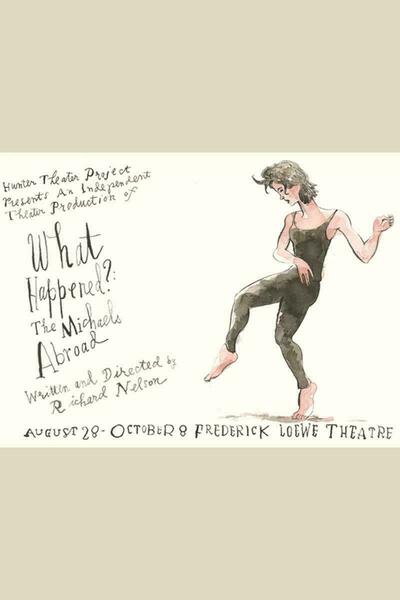 Hunter Theater Project
Presents An Independent
Theater Production of
What
Happened?:
The Michaels
Abroad
Written and Directed by
Richard Nelson
AUGUST 28-OCTOBER 8 FREDERICK LOEWE THEATRE